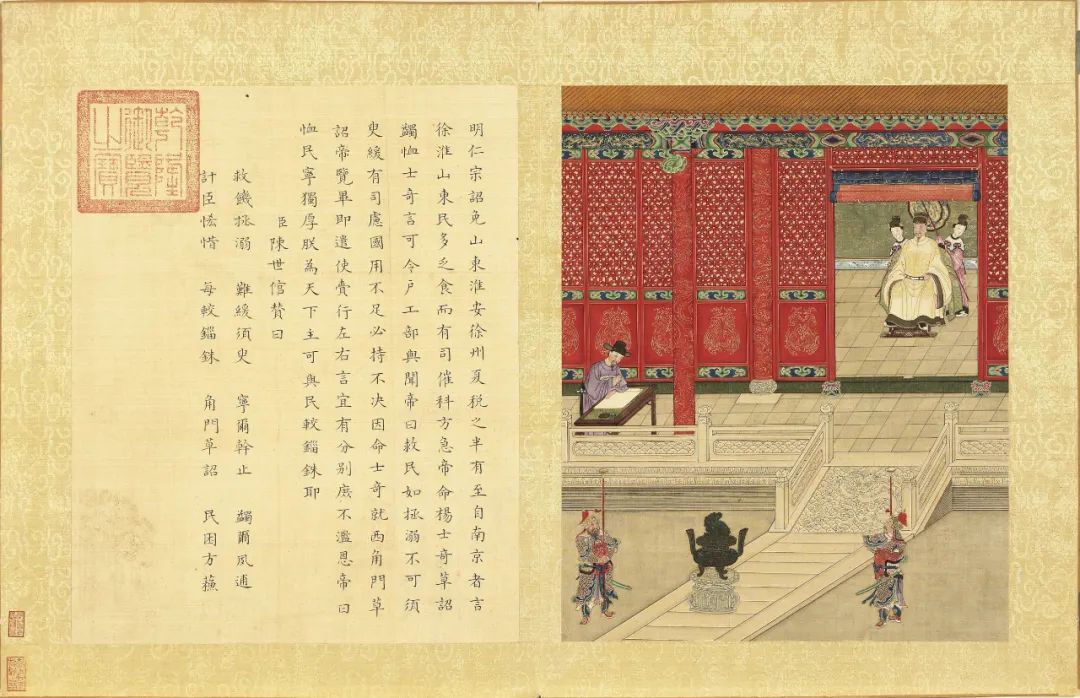 明仁宗詔免山東淮安徐州夏税之半有至自南京者言
徐淮山東民多乏食而有司催科方急帝命楊士奇草詔
蠲恤士奇言可令戶工部與聞帝曰救民如拯溺不可須
臾緩有司慮國用不足必持不决因命士奇就西角門草
詔帝覽畢即遣使賫行左右言宜有分别庶不濫恩帝曰
恤民寧獨厚朕為天下主可與民較錙銖耶
臣陳世信贊曰
救饑拯溺 難緩須臾 寧爾幹止 蠲爾夙逋
計臣恡惜 每較錙銖 角門草詔 民困方蘓
乾隆
御覽
之寶